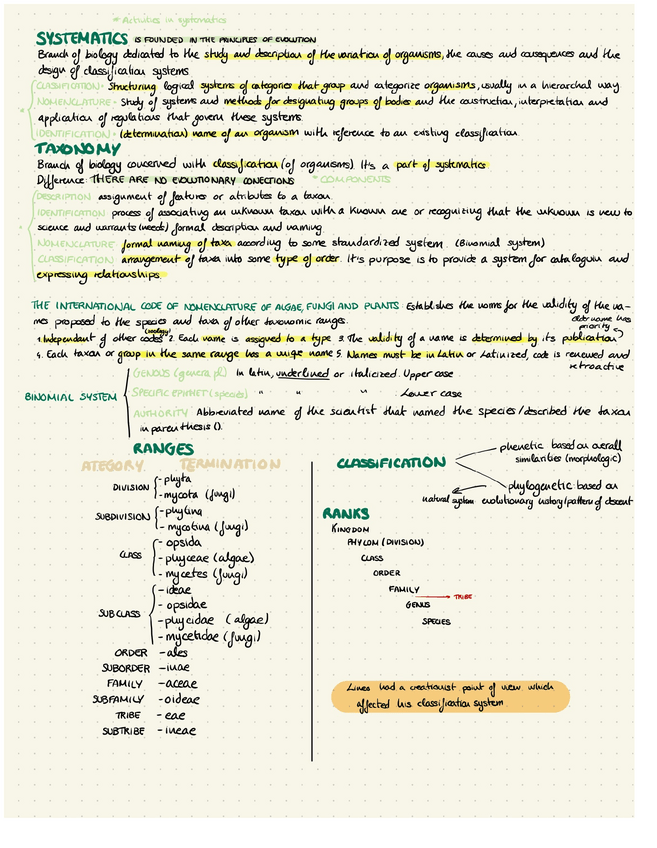 * Activities in systematics
SYSTEMATICS IS FOUNDED IN THE PRINCIPLES OF EVOLUTION
Branch of biology dedicated to the study and description of the variation of organisms, the causes and consequences and the
design of classification systems
CLASSIFICATION: Structuring logical systems of categories that group and categorize organisms, usually in a hierarchal way
NOMENCLATURE: Study of systems and methods for designating groups of bodies and the construction, interpretation and
application of regulations that govern these systems.
IDENTIFICATION: (determination) name of an organism with reference to an existing classification.
TAXONOMY
Branch of biology concerned with classification (of organisms). It's a part of systematics
Difference: THERE ARE NO EVOLUTIONARY CONECTIONS * COMPONENTS
DESCRIPTION assignment of features or atributes to a taxon.
IDENTIFICATION: process of associating an unknown taxon with a known one or recognizing that the unknown is new to
science and warrants (needs) formal description and naming.
NOMENCLATURE formal naming of taxa according to some standardized system. (Binomial system)
CLASSIFICATION arrangement of taxa into some type of order. It's purpose is to provide a system for cataloguin and
expressing relationships.
THE INTERNATIONAL CODE OF NOMENCLATURE OF ALGAE, FUNGI AND PLANTS: Establishes the norms for the validity of the na-
mes proposed to the species and taxa of other taxonomic ranges.
older name has
priority
1. Independent of other codes (zoology) 2. Each name is assigned to a type 3. The validity of a name is determined by its publication
4. Each taxon or group in the same range has a unige name 5. Names must be in Latin or Latinized, code is renewed and
retroactive
BINOMIAL SYSTEM
GENOUS (genera pl) in latin, underlined or italicized. Upper case
SPECIFIC EPITHET (species) " " " : Lower case
AUTHORITY Abbreviated name of the scientist that named the species/described the taxon
in parenthesis ().
RANGES
ATEGORY TERMINATION
DIVISION - phyta
- mycota (fungi)
SUBDIVISION - phytina
- mycotina (fungi)
CLASS - opsida
- phyceae (algae)
- mycetes (fungi)
SUBCLASS - ideae
- opsidae
- phycidae (algae)
- mycetidae (fungi)
ORDER - ales
SUBORDER - inae
FAMILY - aceae
SUBFAMILY - oideae
TRIBE - eae
SUBTRIBE - ineae
CLASSIFICATION
phenetic based on overall
similarities (morphologic)
phylogenetic based on
natural system evolutionary history/pattern of descent
RANKS
KINGDOM
PHYLOM (DIVISION)
CLASS
ORDER
FAMILY
TRIBE
GENUS
SPECIES
Lines had a creationist point of view which
affected his classification system